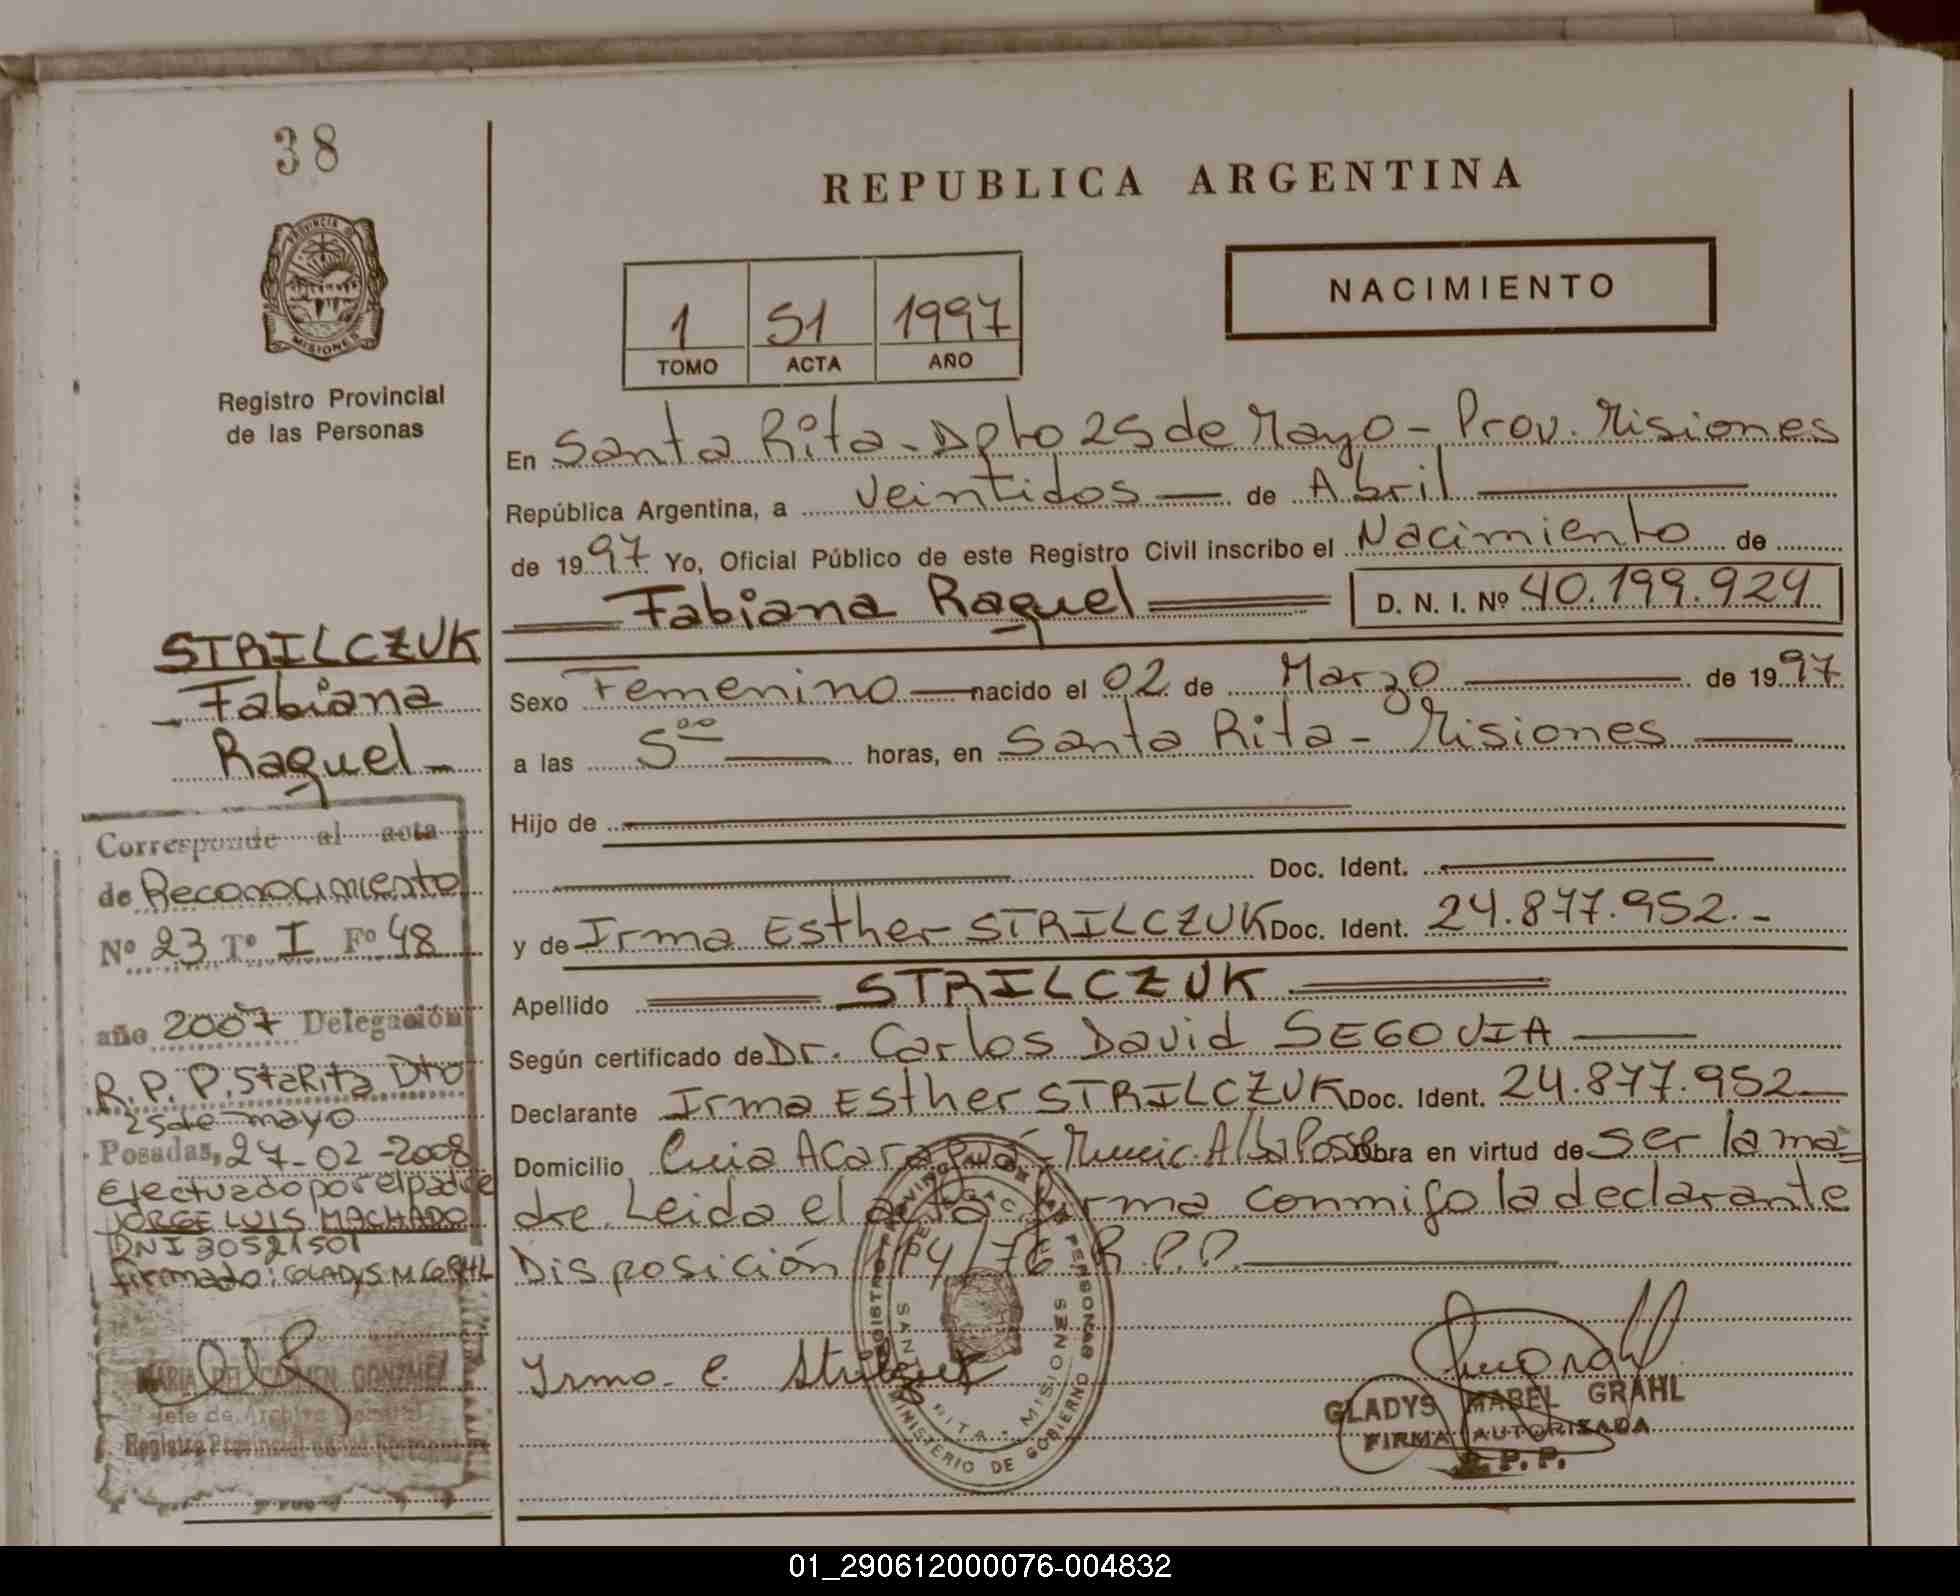 38
PROVINCIA DE
MISIONES
Registro Provincial
de las Personas
REPUBLICA ARGENTINA
NACIMIENTO
1 51 1997
TOMO ACTA AÑO
En Santa Rita - Dpto 25 de Mayo - Prov. Misiones
República Argentina, a veintidos — de Abril —
de 1997 Yo, Oficial Público de este Registro Civil inscribo el Nacimiento de
Fabiana Raquel D. N. I. Nº 40.199.924
Sexo Femenino — nacido el 02 de Marzo — de 1997
a las 5ºº — horas, en Santa Rita - Misiones —
Hijo de —
— Doc. Ident. —
y de Irma Esther STRILCZUK Doc. Ident. 24.877.952.-
Apellido STRILCZUK
Según certificado de Dr. Carlos David SEGOVIA —
Declarante Irma Esther STRILCZUK Doc. Ident. 24.877.952 —
Domicilio Acaraguá - Munic. Alba Posse Obra en virtud de ser la ma=
dre. Leida el acta firma conmigo la declarante
Disposición 114/76 R.P.P. —
Irma E. Strilczuk
REGISTRO PROVINCIAL DE LAS PERSONAS
MINISTERIO DE GOBIERNO
SANTA RITA - MISIONES
GLADYS MABEL GRAHL
FIRMA AUTORIZADA
R. P. P.
STRILCZUK
Fabiana
Raquel -
Corresponde al acta
de Reconocimiento
Nº 23 Tº I Fº 48
año 2007 Delegación
R. P. P. Sta Rita Dto
25 de mayo
Posadas, 27-02-2008
Efectuado por el padre
JORGE LUIS MACHADO
DNI 30521501
firmado: GLADYS M. GRAHL
MARIA DEL CARMEN GONZALEZ
Jefe de Archivo General
Registro Provincial de las Personas
01_290612000076-004832